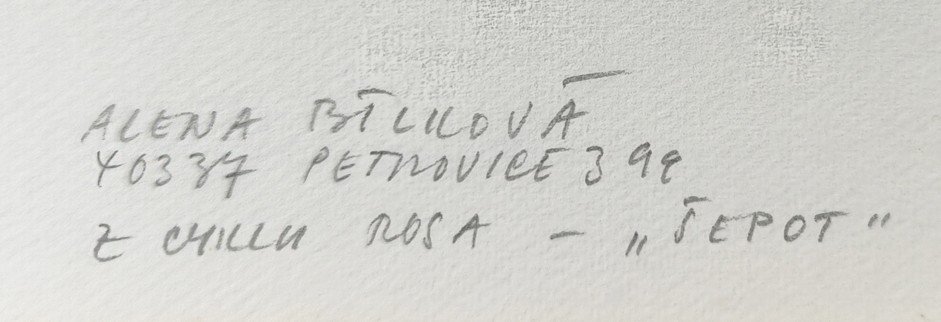 ALENA BÍLKOVÁ
40337 PETROVICE 399
Z CYKLU ROSA – „ŠEPOT"